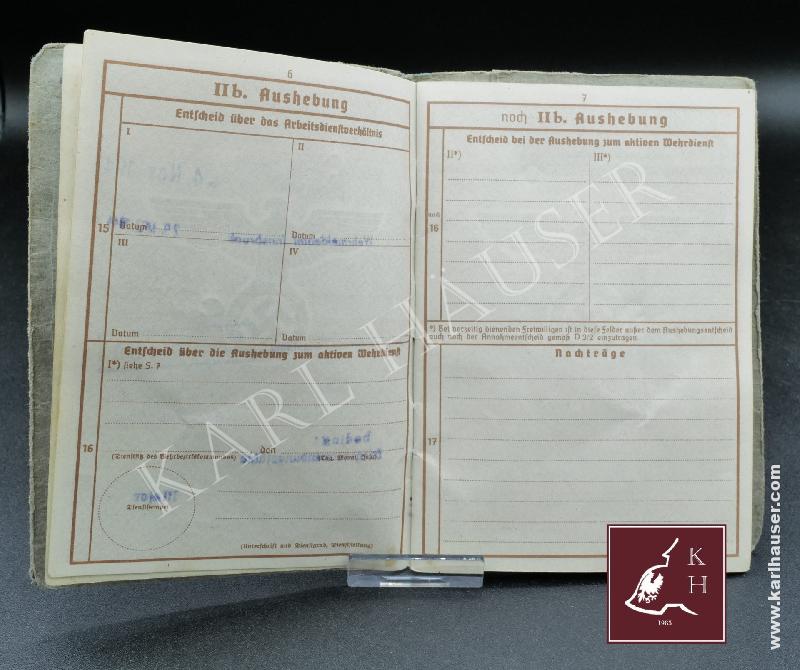 6
IIb. Aushebung
Entscheid über das Arbeitsdienstverhältnis
I
II
15
Datum
Datum
III
IV
Datum
Datum
Entscheid über die Aushebung zum aktiven Wehrdienst
I*) siehe S. 7
16
den
(Dienstsitz des Wehrbezirkskommandos)
(Tag, Monat, Jahr)
Dienststempel
(Unterschrift und Dienstgrad, Dienststellung)
7
noch IIb. Aushebung
Entscheid bei der Aushebung zum aktiven Wehrdienst
II*)
III*)
noch
16
*) Bei vorzeitig dienenden Freiwilligen ist in diese Felder außer dem Aushebungsentscheid
auch noch der Annahmeentscheid gemäß D 3/2 einzutragen.
Nachträge
17
KARL HAUSER
K
H
1965
www.karlhauser.com